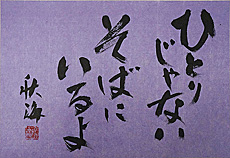 ひとり
じゃない
そばに
いるよ
秋海